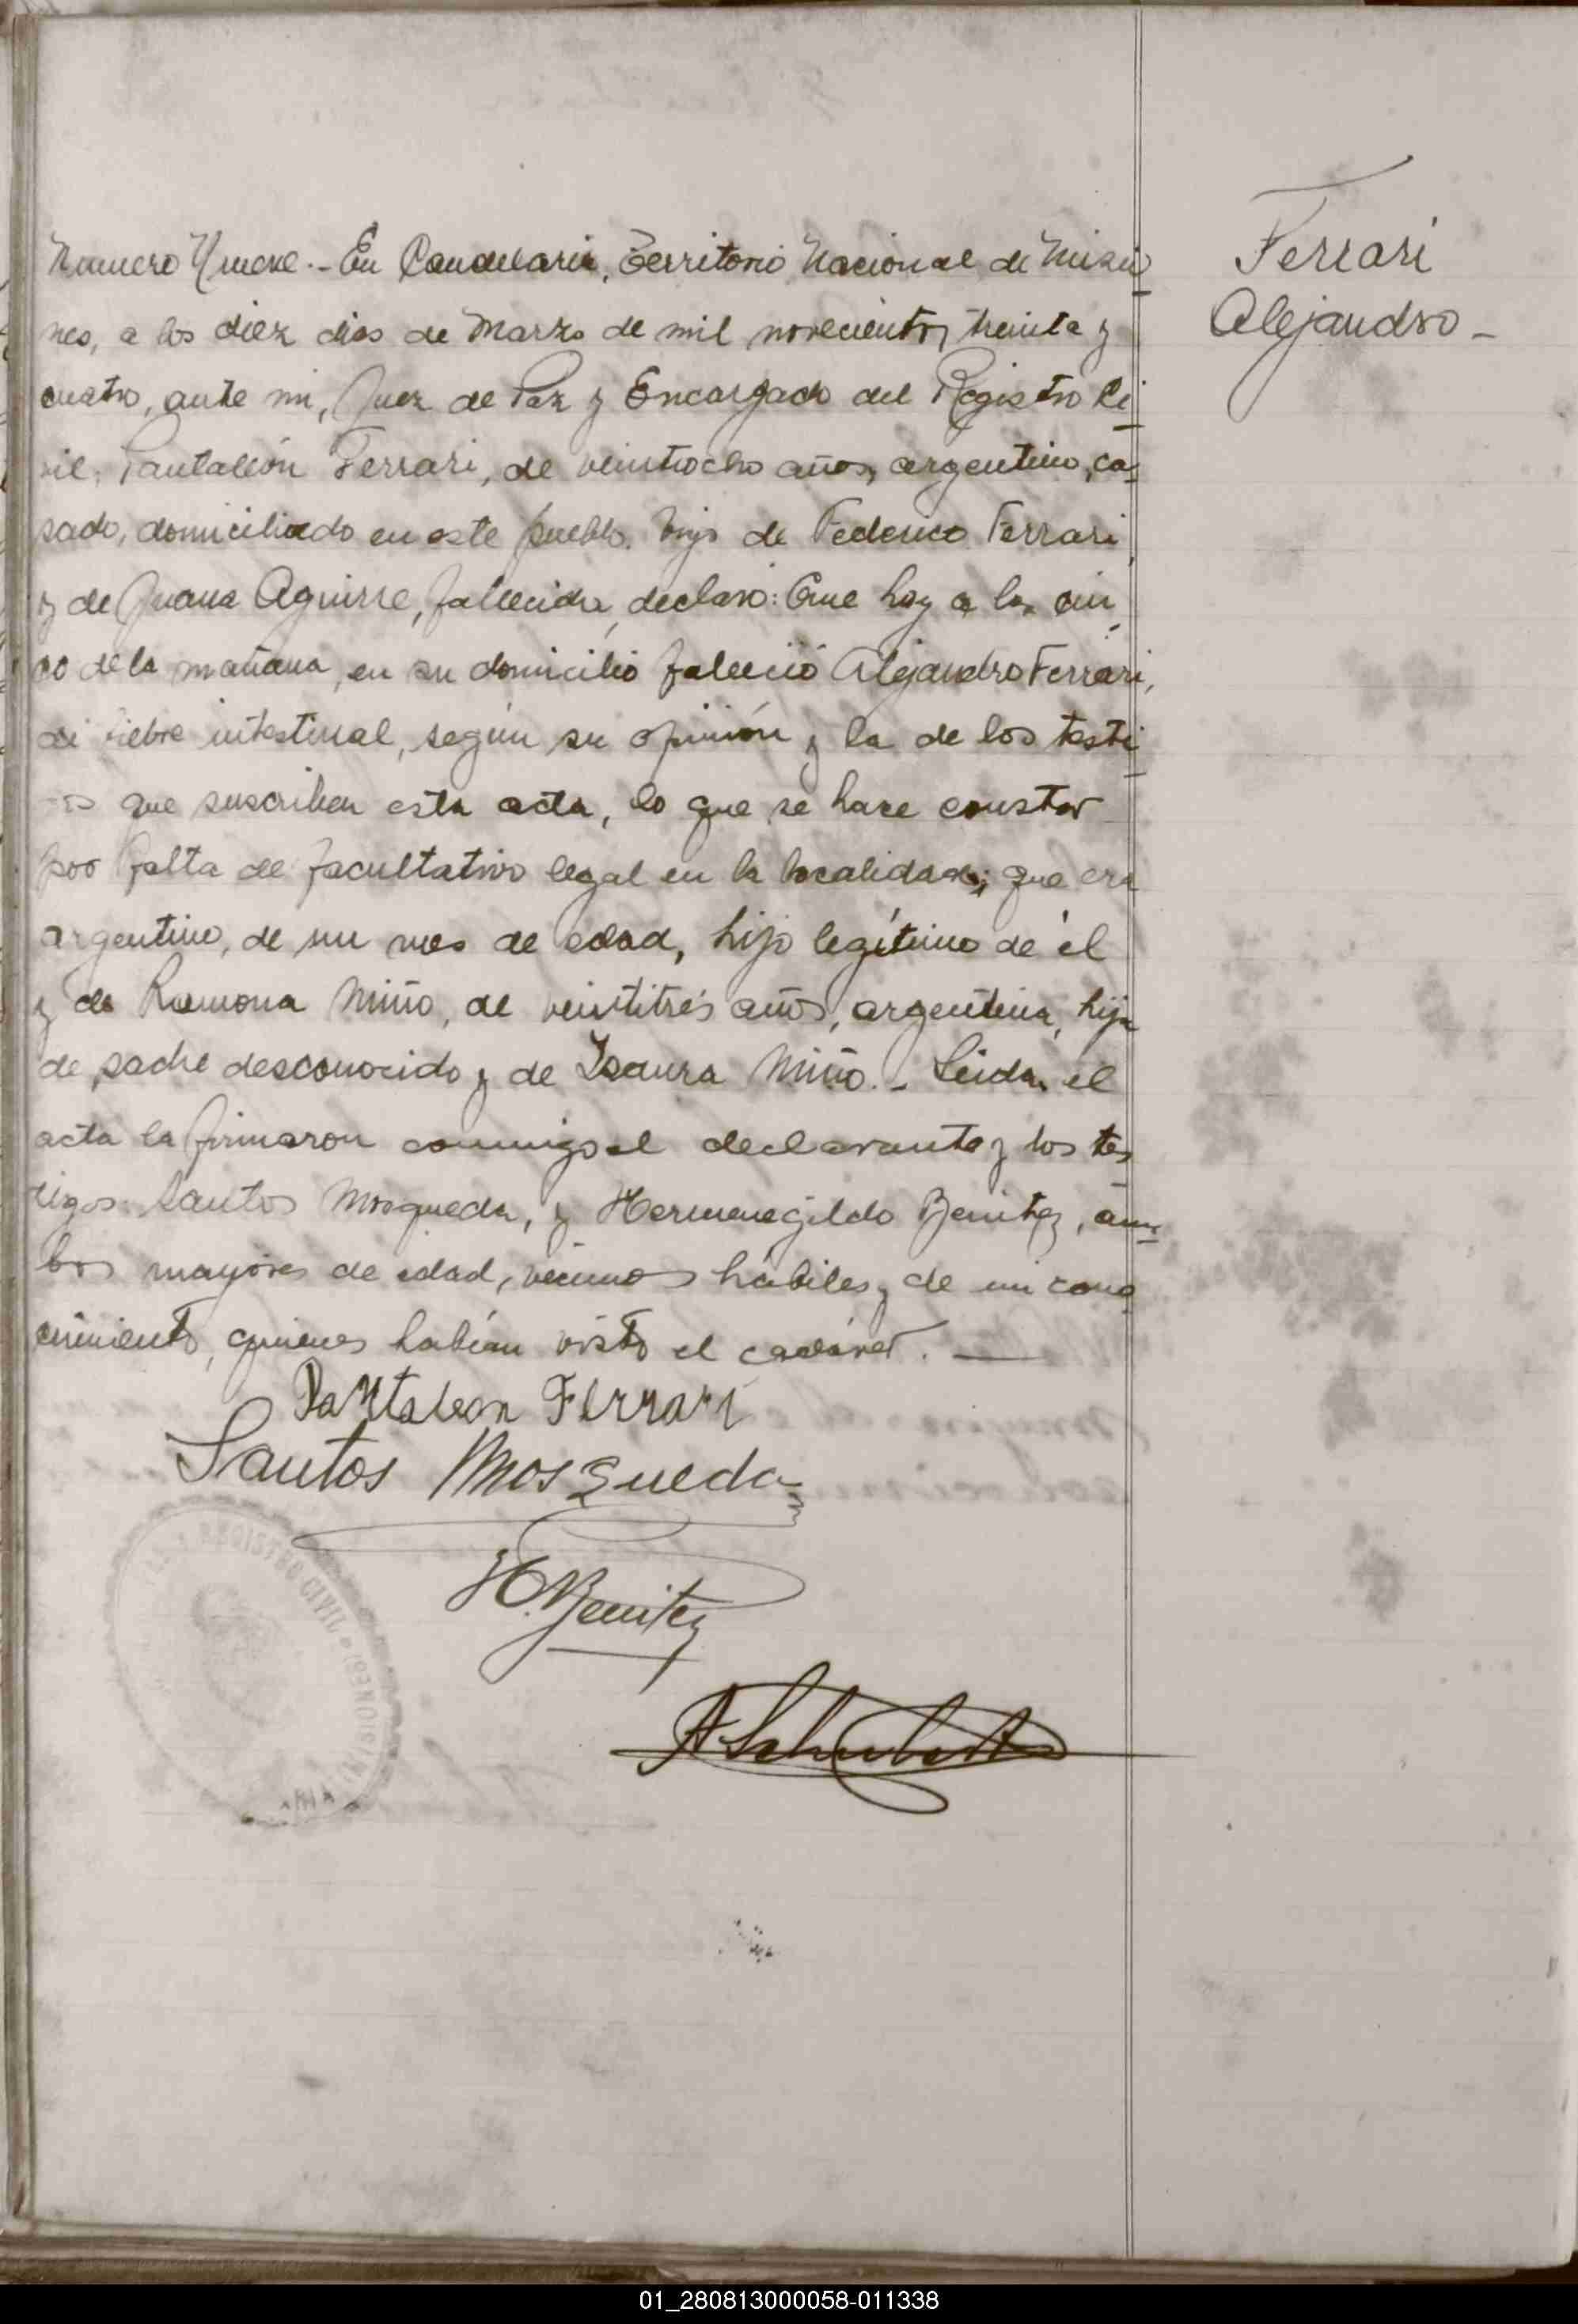 Ferrari
Alejandro -
Numero Nueve.- En Candelaria, Territorio Nacional de Misio
nes, a los diez dias de Marzo de mil novecientos treinta y
cuatro, ante mi, Juez de Paz y Encargado del Registro Ci
vil, Pantaleón Ferrari, de veintiocho años, argentino, ca
sado, domiciliado en este pueblo, hijo de Federico Ferrari
y de Juana Aguirre, fallecida, declaró: Que hoy a las cin
co de la mañana, en su domicilio falleció Alejandro Ferrari,
de fiebre intestinal, según su opinión y la de los testi
que suscriben esta acta, lo que se hace constar
por falta de facultativo legal en la localidad; que era
argentino, de un mes de edad, hijo legítimo de él
y de Ramona Miño, de veintitrés años, argentina, hija
de padre desconocido y de Isaura Miño.- Leida el
acta la firmaron conmigo el declarante y los tes
tigos Santos Mosqueda, y Hermenegildo Benitez, am
bos mayores de edad, vecinos hábiles y de mi cono
cimiento, quienes habían visto el cadáver. —
Pantaleon Ferrari
Santos Mosqueda
H. Benitez
A Schubert
REGISTRO CIVIL
(MISIONES)
01_280813000058-011338